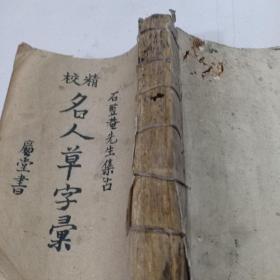 石䀋菴先生集古
精校
名人草字彙
廣堂書